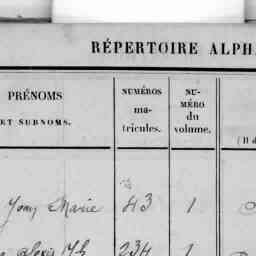 RÉPERTOIRE ALPH
PRÉNOMS
ET SURNOMS.
NUMÉROS
ma-
tricules.
NU-
MÉRO
du
volume.
Marie 43 1
234 1